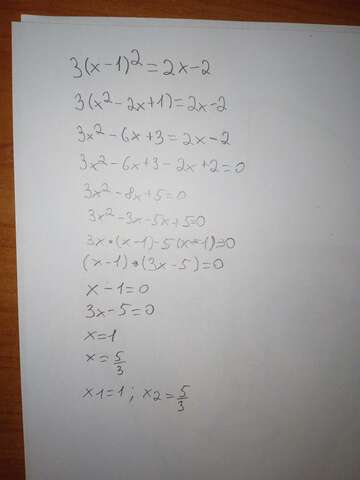 3(x-1)²=2x-2
3(x²-2x+1)=2x-2
3x²-6x+3=2x-2
3x²-6x+3-2x+2=0
3x²-8x+5=0
3x²-3x-5x+5=0
3x•(x-1)-5(x-1)=0
(x-1)•(3x-5)=0
x-1=0
3x-5=0
x=1
x=5/3
x1=1; x2=5/3